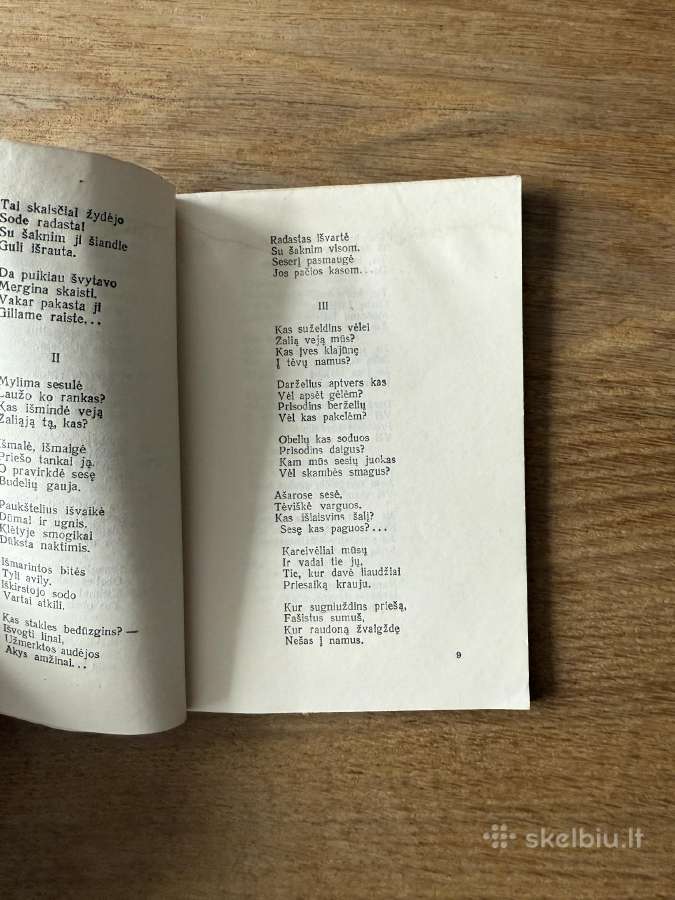 Tai skaisčiai žydėjo
Sode radasta!
Su šaknim ji šiandie
Guli išrauta.
Da puikiau švytavo
Mergina skaisti.
Vakar pakasta ji
Giliame raiste...
II
Mylima sesulė
Laužo ko rankas?
Kas išmindė veją
Žaliąją tą, kas?
Išmalė, išmaigė
Priešo tankai ją.
O pravirkdė sesę
Budelių gauja.
Paukštelius išvaikė
Dūmai ir ugnis.
Klėtyje smogikai
Dūksta naktimis.
Išmarintos bitės
Tyli avily.
Iškirstojo sodo
Vartai atkili.
Kas stakles bedūzgins? —
Išvogti linai,
Užmerktos audėjos
Akys amžinai...
Radastas išvartė
Su šaknim visom.
Seserį pasmaugė
Jos pačios kasom...
III
Kas suželdins vėlei
Žalią veją mūs?
Kas įves klajūnę
Į tėvų namus?
Darželius aptvers kas
Vėl apsėt gėlėm?
Prisodins berželių
Vėl kas pakelėm?
Obelų kas soduos
Prisodins daigus?
Kam mūs sesių juokas
Vėl skambės smagus?
Ašarose sesė,
Tėviškė varguos.
Kas išlaisvins šalį?
Sesę kas paguos?...
Kareivėliai mūsų
Ir vadai tie jų,
Tie, kur davė liaudžiai
Priesaiką krauju.
Kur sugniuždins priešą,
Fašistus sumuš,
Kur raudoną žvaigždę
Nešas į namus.
9
skelbiu.lt